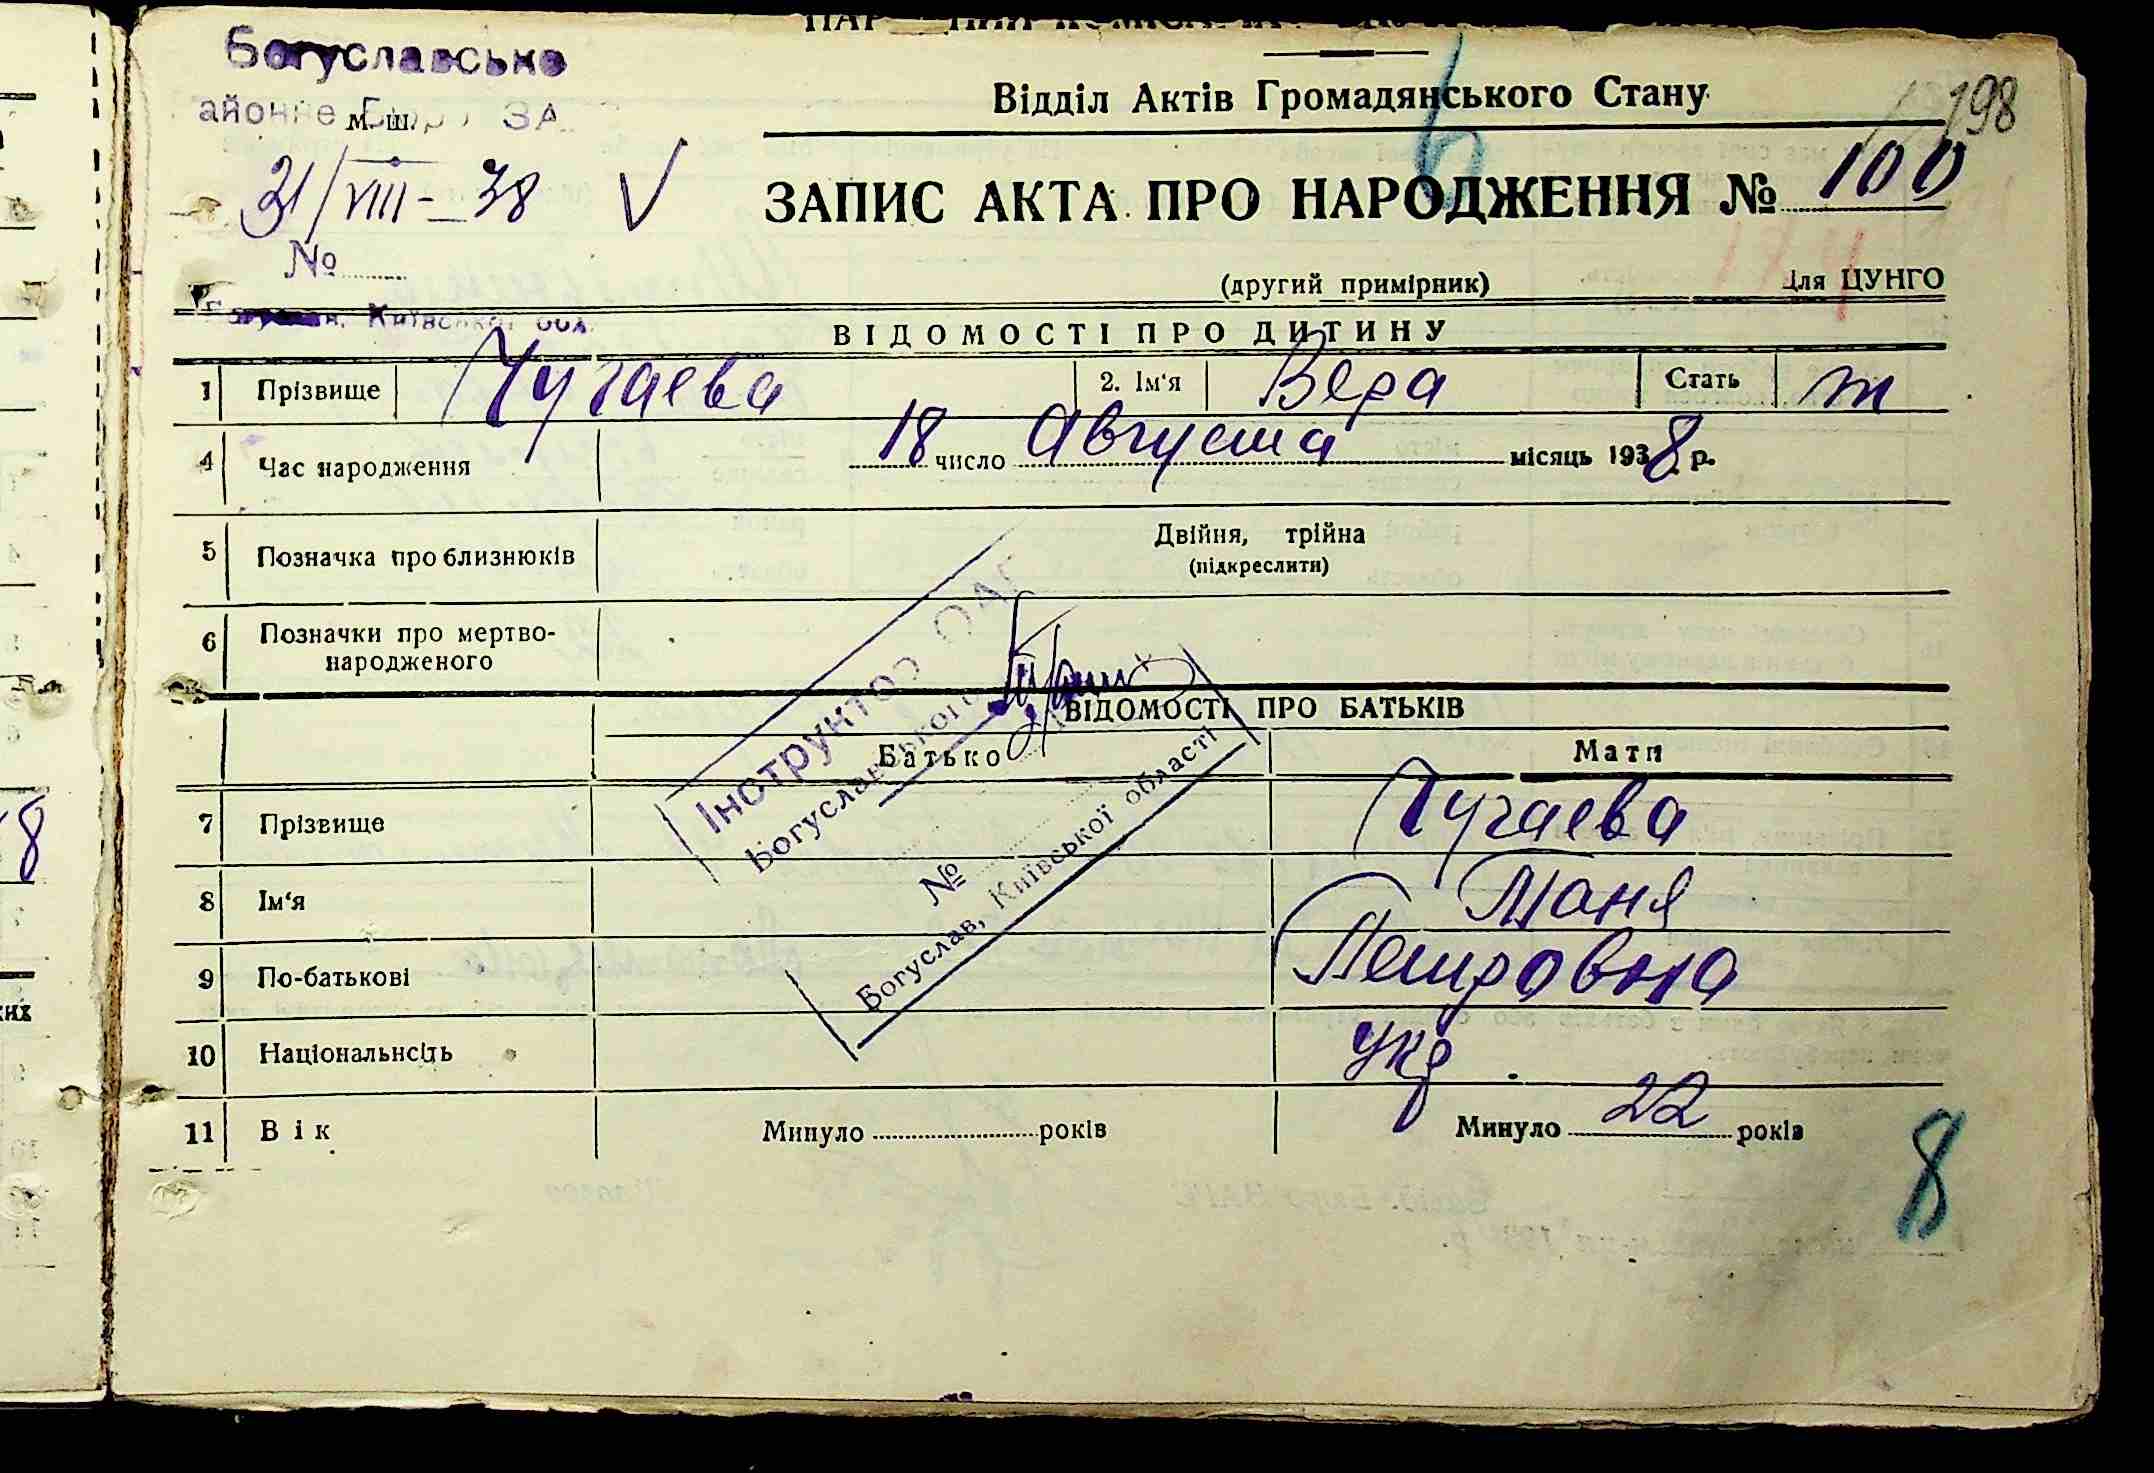 Богуславське
айонне Бюро ЗА
м. ш.
Відділ Актів Громадянського Стану
198
31/VIII-38 V
ЗАПИС АКТА ПРО НАРОДЖЕННЯ № 100
№
(другий примірник) Для ЦУНГО
Київської обл.
ВІДОМОСТІ ПРО ДИТИНУ
1 Прізвище Пугаева 2. Ім'я Вера Стать ж
4 Час народження 18 число Августа місяць 1938 р.
5 Позначка про близнюків Двійня, трійна
(підкреслити)
6 Позначки про мертво-
народженого
ВІДОМОСТІ ПРО БАТЬКІВ
Батько Мати
7 Прізвище Пугаева
8 Ім'я Таня
9 По-батькові Петровна
10 Національність укр
11 Вік Минуло років Минуло 22 років
Інструктор ОАГС
Богуславського
№
Богуслав, Київської області
8